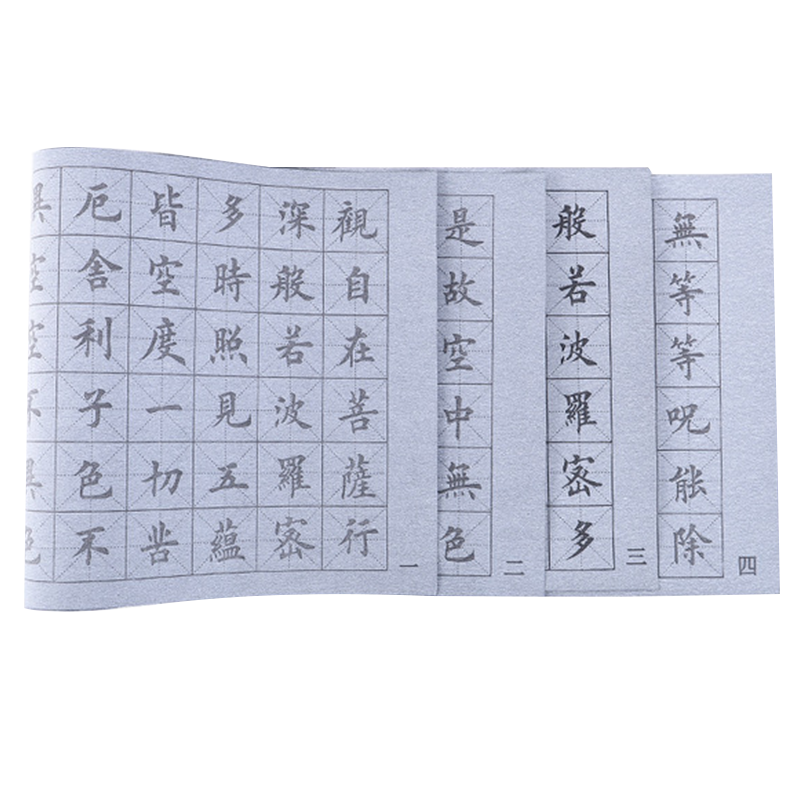 觀自在菩薩行
深般若波羅密
多時照見五蘊
皆空度一切苦
厄舍利子色不
一
是故空中無色
二
般若波羅密多
三
無等等呪能除
四